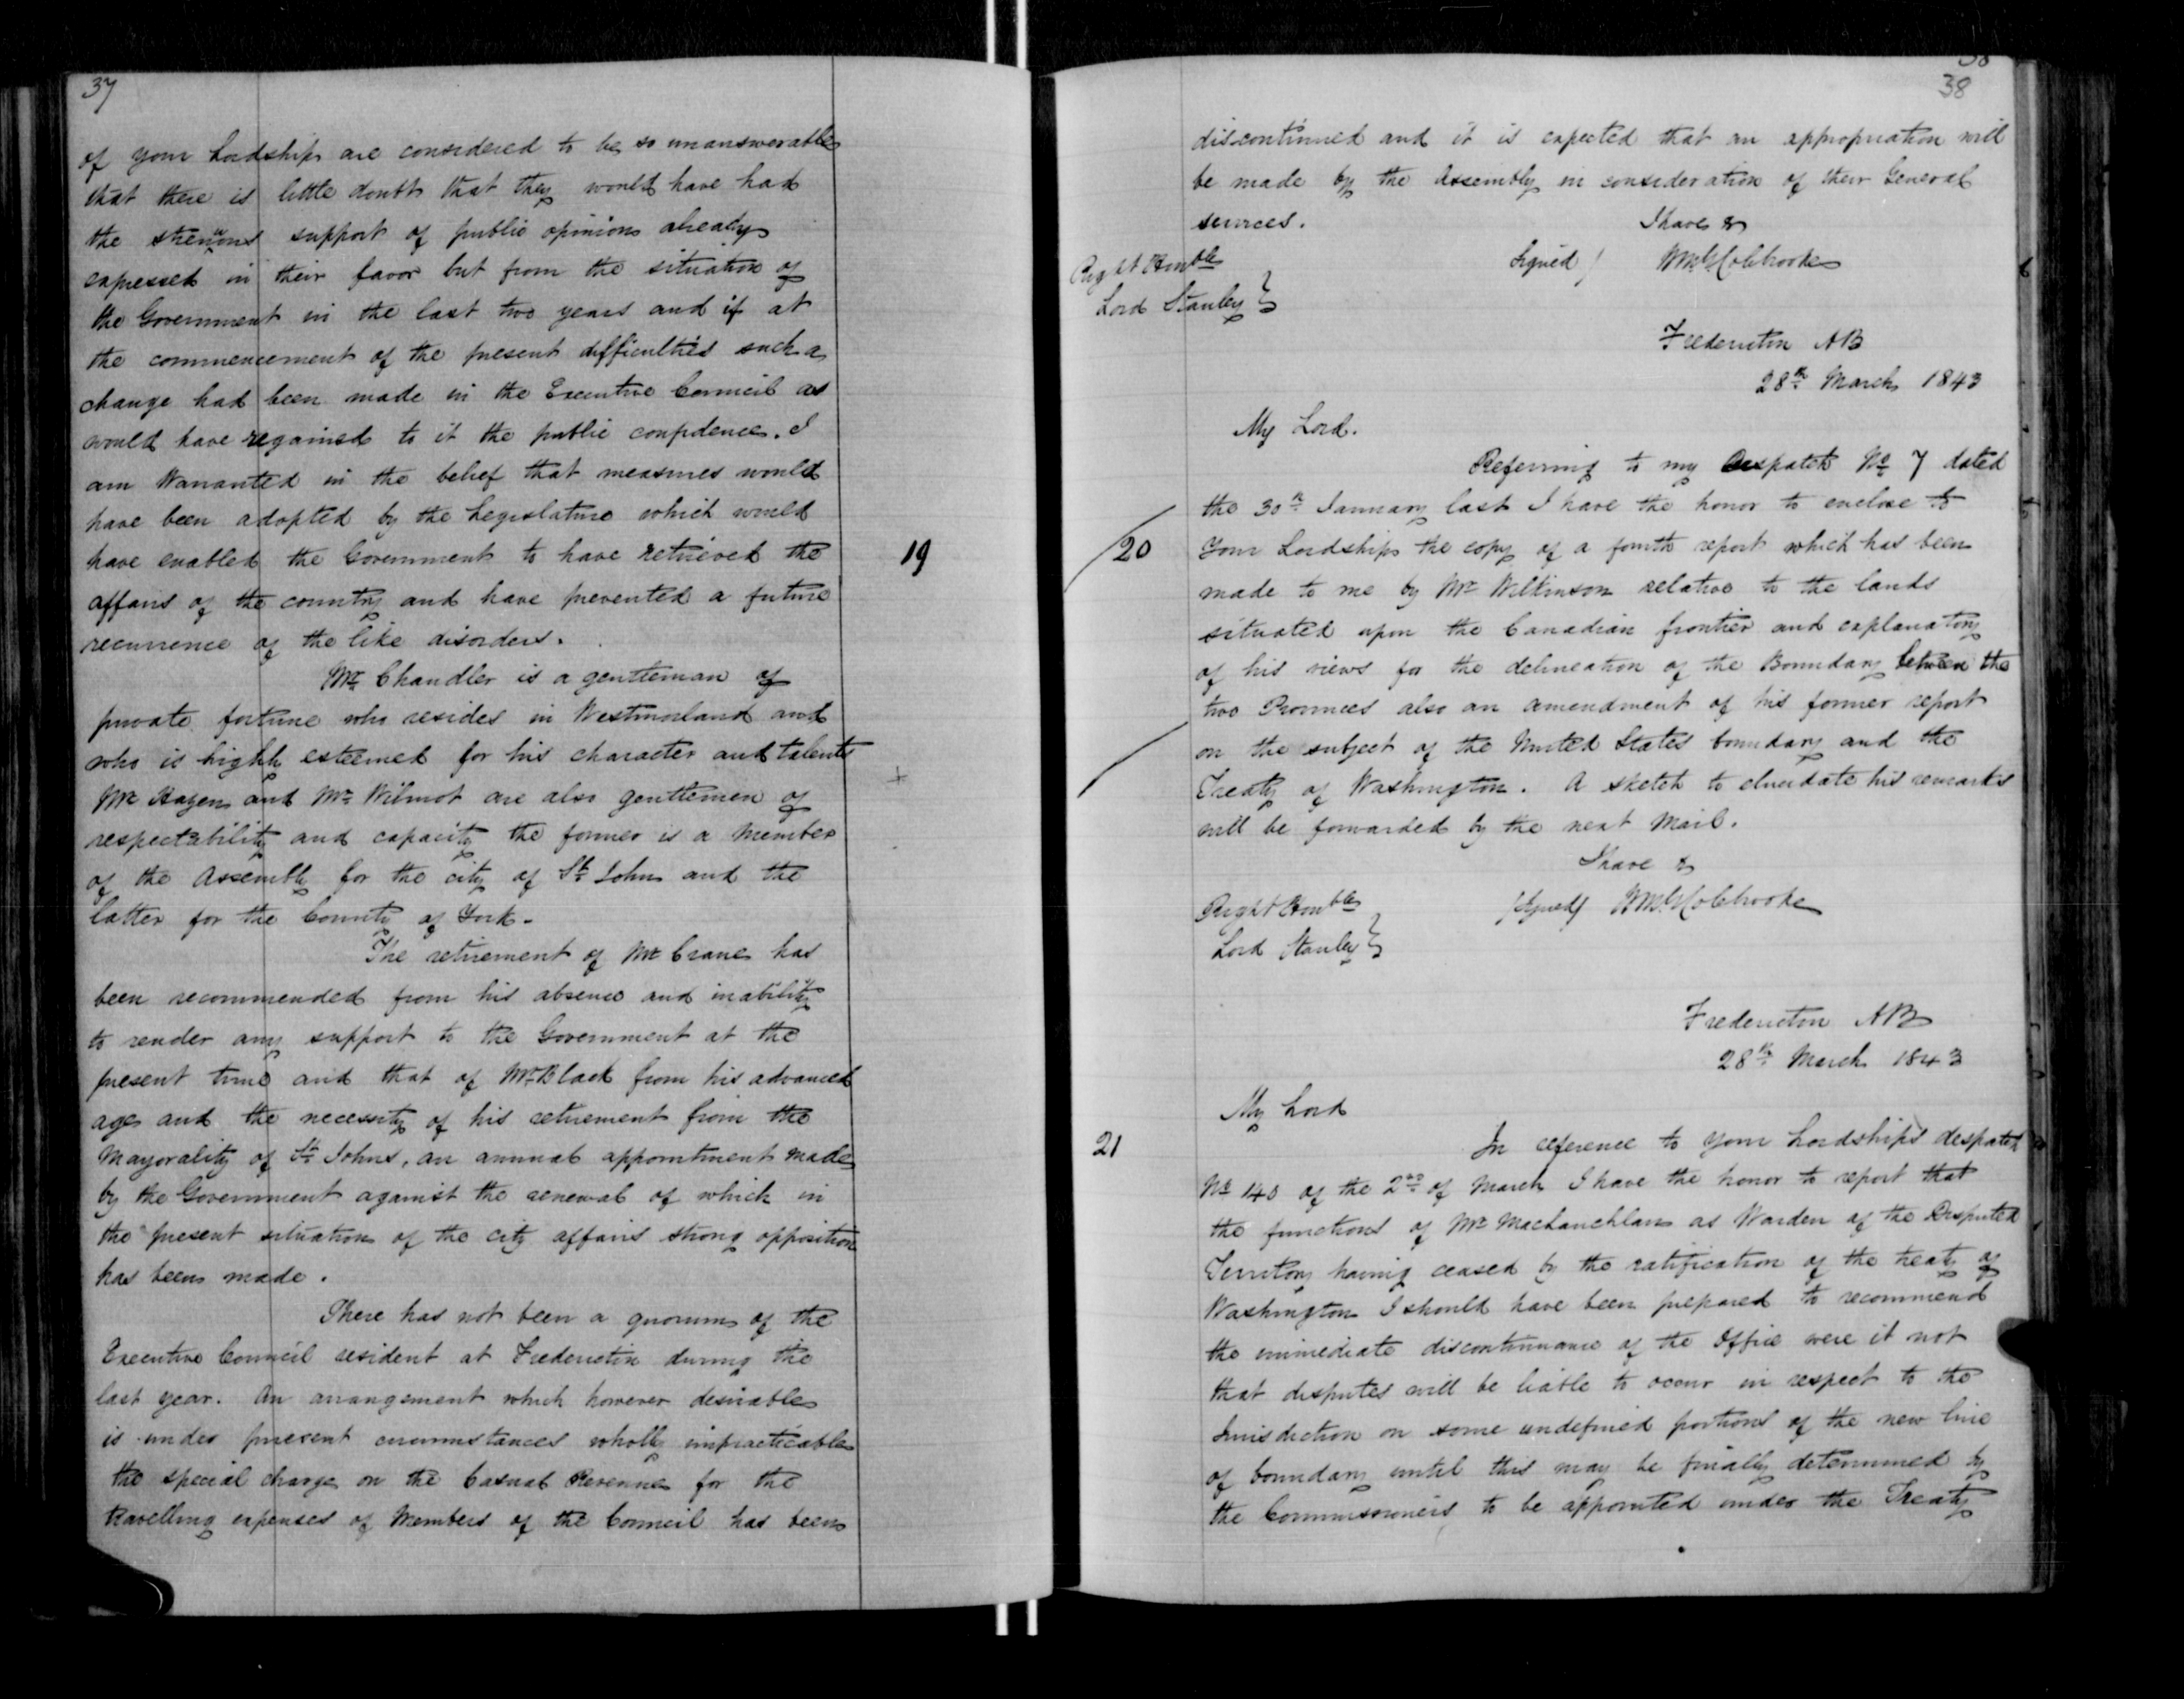 37
of your Lordship are considered to be so unanswerable
that there is little doubt that they would have had
the strenuous support of public opinion already
expressed in their favor but from the situation of
the Government in the last two years and if at
the commencement of the present difficulties such a
change had been made in the Executive Council as
would have regained to it the public confidence. I
am Warranted in the belief that measures would
have been adopted by the Legislature which would
have enabled the Government to have retrieved the
19
affairs of the country and have prevented a future
recurrence of the like disorders.
Mr Chandler is a gentleman of
private fortune who resides in Westmorland and
who is highly esteemed for his character and talents
+
Mr Hazen and Mr Wilmot are also gentlemen of
respectability and capacity the former is a Member
of the Assembly for the city of St John and the
latter for the County of York.
The retirement of Mr Crane has
been recommended from his absence and inability
to render any support to the Government at the
present time and that of Mr Black from his advanced
age and the necessity of his retirement from the
Mayorality of St Johns, an annual appointment made
by the Government against the renewal of which in
the present situation of the city affairs strong opposition
has been made.
There has not been a quorum of the
Executive Council resident at Fredericton during the
last year. An arrangement which however desirable
is under present circumstances wholly impracticable
the special charge on the Casual Revenue for the
travelling expenses of Members of the Council has been
38
discontinued and it is expected that an appropriation will
be made by the Assembly in consideration of their General
services.
I have &
Right Honble
Lord Stanley }
Signed / WMG Colebrooke
Fredericton NB
28th March 1843
My Lord.
Referring to my Despatch No 7 dated
the 30th January last I have the honor to enclose to
20
Your Lordship the copy of a fourth report which has been
made to me by Mr Wilkinson relative to the lands
situated upon the Canadian frontier and explanatory
of his views for the delineation of the Boundary between the
two Provinces also an amendment of his former report
on the subject of the United States boundary and the
Treaty of Washington. A sketch to elucidate his remarks
will be forwarded by the next Mail.
I have &
Right Honble
Lord Stanley }
/Signed/ WMG Colebrooke
Fredericton NB
28th March 1843
My Lord
21
In reference to your Lordship's despatch
No 140 of the 2nd of March I have the honor to report that
the functions of Mr MacLauchlan as Warden of the Disputed
Territory having ceased by the ratification of the treaty of
Washington I should have been prepared to recommend
the immediate discontinuance of the Office were it not
that disputes will be liable to occur in respect to the
Jurisdiction on some undefined portions of the new line
of boundary until this may be finally determined by
the Commissioners to be appointed under the Treaty